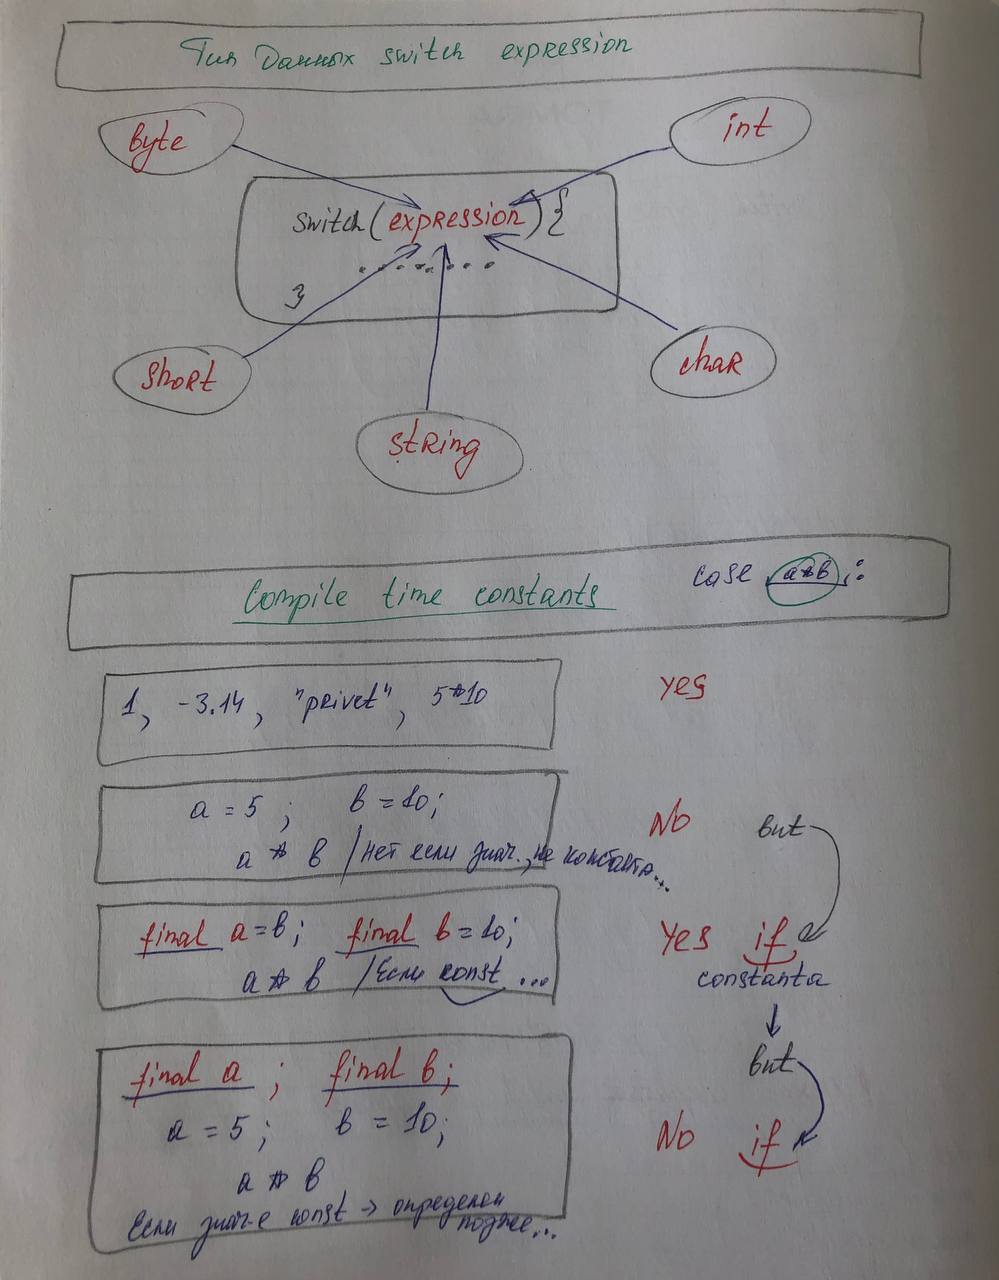 Тип Данных switch expression
byte
int
switch(expression){
........
}
short
char
string
Compile time constants
case a*b;:
1, -3.14, "privet", 5*10
yes
a = 5 ; b = 10;
No but
a * b /нет если знач., не константа...
final a=b; final b=10;
Yes if
a * b /Если const ...
constanta
but
final a ; final b;
a = 5 ; b = 10;
No if
a * b
Если знач-е const → определен
позже...